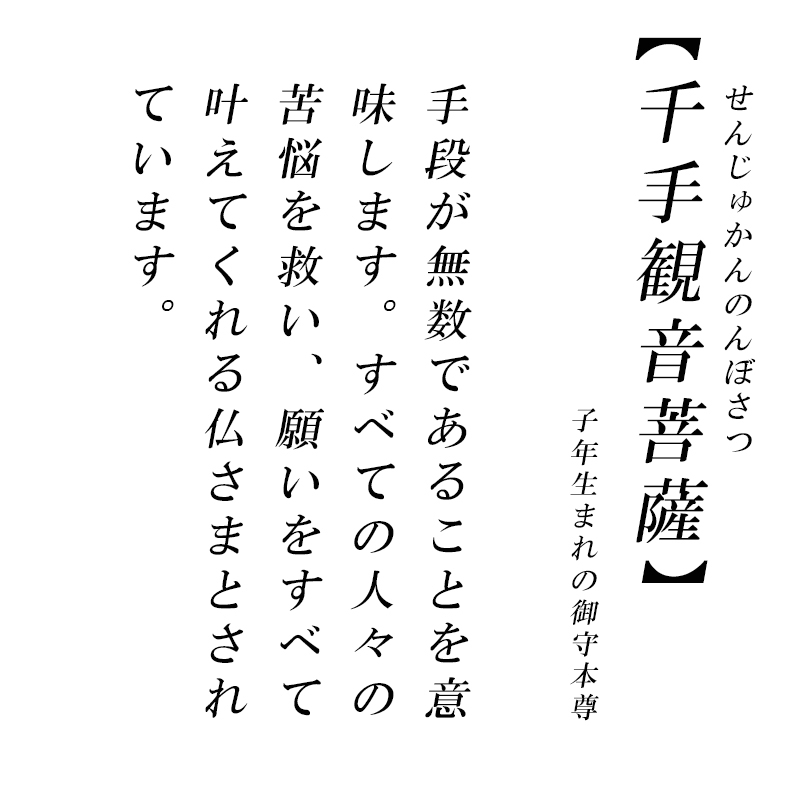 せんじゅかんのんぼさつ
【千手観音菩薩】
子年生まれの御守本尊
手段が無数であることを意
味します。すべての人々の
苦悩を救い、願いをすべて
叶えてくれる仏さまとされ
ています。